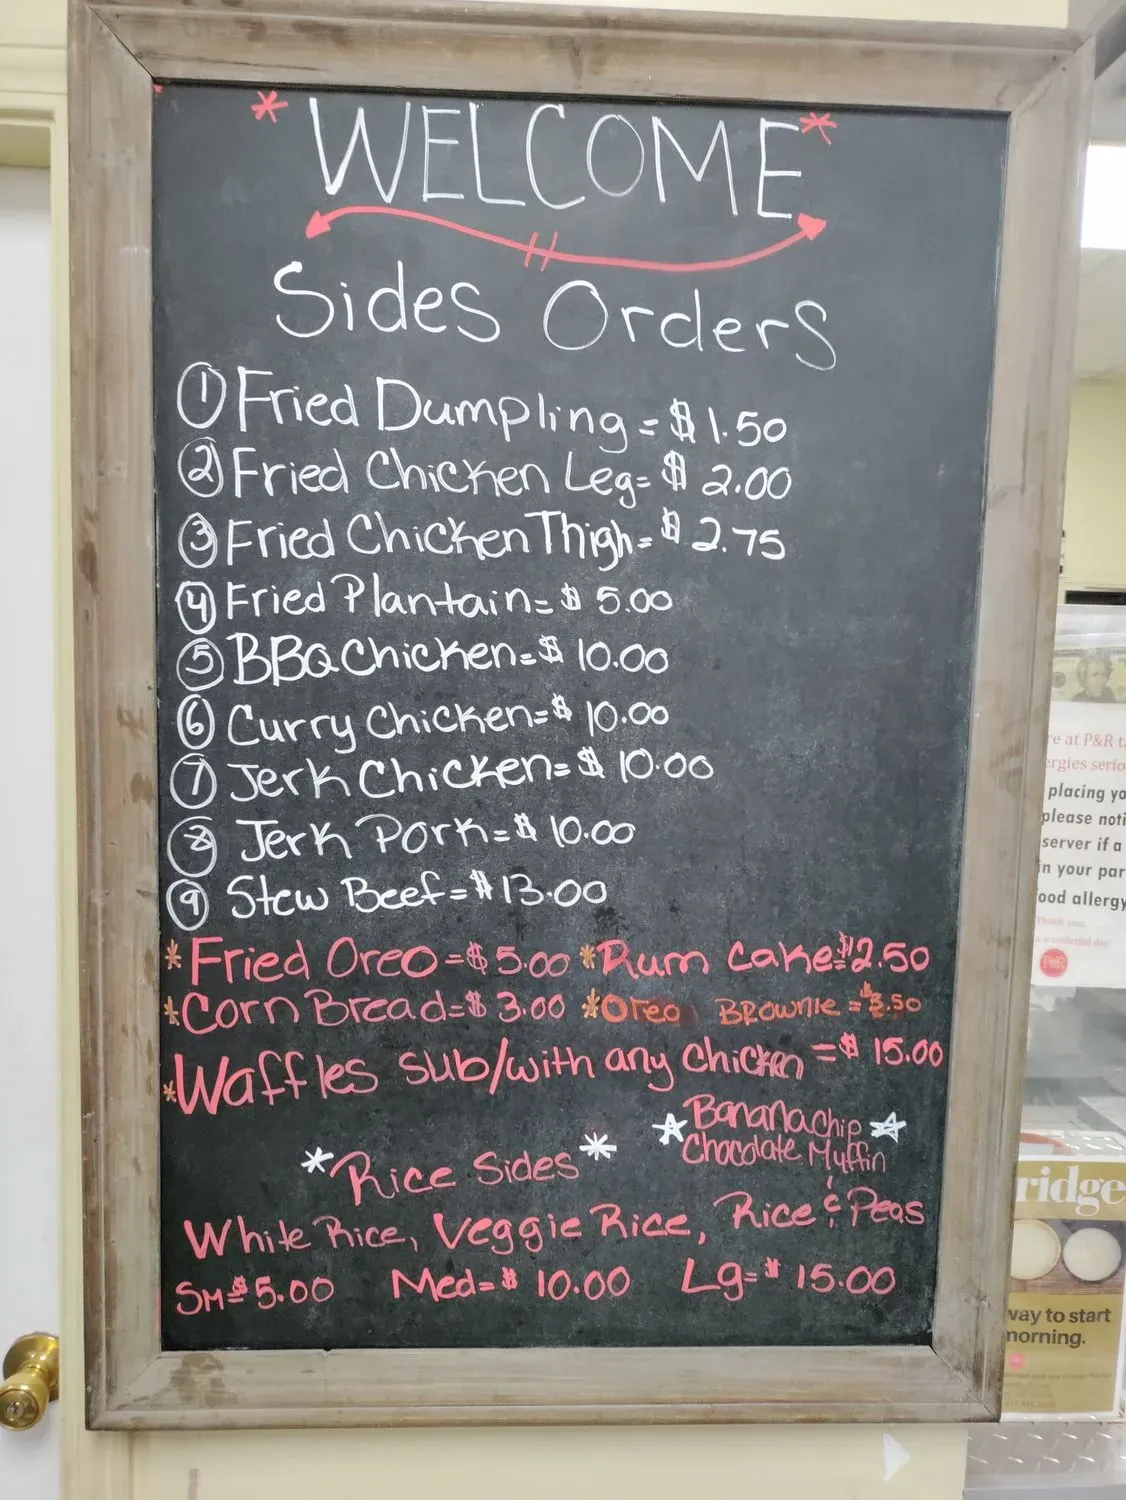 * WELCOME *
Sides Orders
1 Fried Dumpling = $ 1.50
2 Fried Chicken Leg= $ 2.00
3 Fried Chicken Thigh= $ 2.75
4 Fried Plantain= $ 5.00
5 BBQ Chicken= $ 10.00
6 Curry Chicken= $ 10.00
7 Jerk Chicken= $ 10.00
8 Jerk Pork= $ 10.00
9 Stew Beef= $ 13.00
* Fried Oreo = $ 5.00 * Rum Cake= $ 2.50
* Corn Bread= $ 3.00 * Oreo BROWNIE =
* Waffles sub/with any Chicken = $ 15.00
☆ Banana Chip ☆
Chocolate Muffin
* Rice Sides *
White Rice, Veggie Rice, Rice & Peas
SM= $ 5.00 Med= $ 10.00 Lg= $ 15.00
re at P&R t
ergies serio
placing yo
please noti
server if a
in your par
ood allergy
Thank you,
a wonderful day
P&R
ridge
way to start
morning.